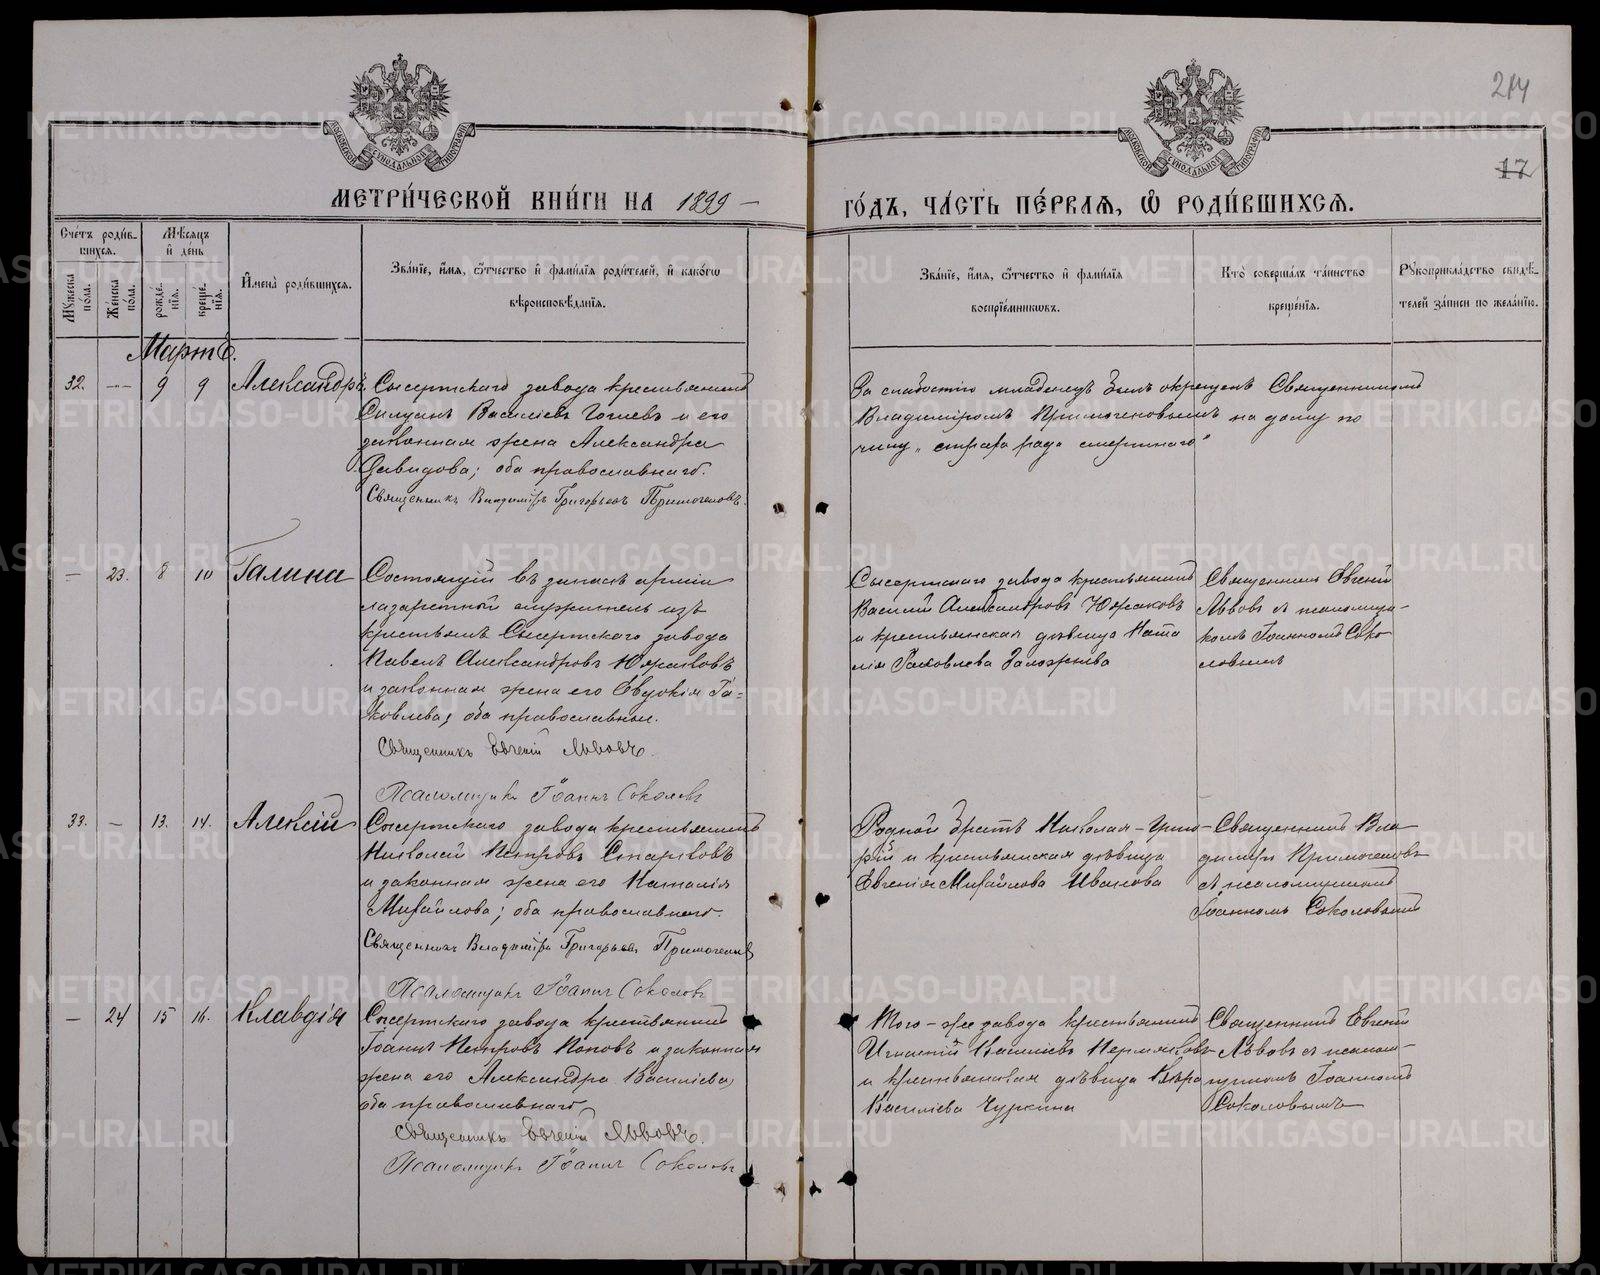 214
17
МОСКОВСКОЙ СѴНОДАЛЬНОЙ ТИПОГРАФІИ
МОСКОВСКОЙ СѴНОДАЛЬНОЙ ТИПОГРАФІИ
МЕТРИ́ЧЕСКОЙ КНИ́ГИ НА 1899 —
ГО́ДЪ, ЧА́СТЬ ПЕ́РВАѦ, Ѡ҆ РОДИ́ВШИХСѦ.
Сче́тъ роди́в-
шихсѧ.
Мꙋжеска по́ла.
Же́нска по́ла.
Мѣ́сѧцъ и҆ де́нь
рожде́-нїѧ.
креще́-нїѧ.
И҆мена̀ роди́вшихсѧ.
Зва́нїе, и҆́мѧ, ѻ҆́тчество и҆ фами́лїѧ роди́телей, и҆ како́гѡ
вѣроисповѣ́данїѧ.
Зва́нїе, и҆́мѧ, ѻ҆́тчество и҆ фами́лїѧ
воспрїе́мникѡвъ.
Кто̀ соверша́лъ та́инство
креще́нїѧ.
Рꙋкоприкла́дство свидѣ́-
телей за́писи по жела́нїю.
Мартъ.
32. — 9 9 Александръ
Сысертскаго завода крестьянинъ
Силуанъ Василіевъ и его
законная жена Александра
Давидова; оба православнаго.
Священникъ Владиміръ Григорьевъ Примогеновъ.
За слабостію младенецъ былъ окрещенъ Священникомъ
Владиміромъ Примогеновымъ на дому по
чину „страха ради смертнаго"
— 23. 8 10 Галина
Состоящій въ запасѣ арміи
лазаретный служитель изъ
крестьянъ Сысертскаго завода
Павелъ Александровъ Южаковъ
и законная жена его Евдокія Іа-
ковлева, оба православные.
Священникъ Евгеній Львовъ.
Псаломщикъ Іоаннъ Соколовъ
Сысертскаго завода крестьянинъ
Василій Александровъ Южаковъ
и крестьянская дѣвица Ната
лія Іаковлева
Священникъ Евгеній
Львовъ съ псаломщи-
комъ Іоанномъ Соко
ловымъ
33. — 13. 14. Алексій
Сысертскаго завода крестьянинъ
Николай Петровъ Старковъ
и законная жена его Наталія
Михайлова; оба православнаго.
Священникъ Владиміръ Григорьевъ Примогеновъ
Псаломщикъ Іоаннъ Соколовъ
Родной братъ Николая — Григо-
рій и крестьянская дѣвица
Евгенія Михайлова Иванова
Священникъ Вла
димиръ Примогеновъ
съ псаломщикомъ
Іоанномъ Соколовымъ
— 24 15 16. Клавдія
Сысертскаго завода крестьянинъ
Іоаннъ Петровъ Поповъ и законная
жена его Александра Василіева,
оба православнаго
Священникъ Евгеній Львовъ.
Псаломщикъ Іоаннъ Соколовъ
Того-же завода крестьянинъ
Игнатій Василіевъ Пермяковъ
и крестьянская дѣвица Вѣра
Василіева Чуркина
Священникъ Евгеній
Львовъ съ псалом-
щикомъ Іоанномъ
Соколовымъ
METRIKI.GASO-URAL.RU